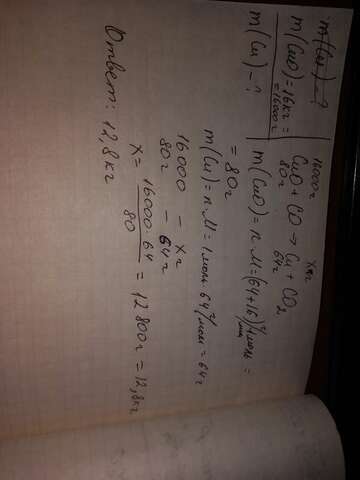 m(Cu) - ?
m(CuO) = 16кг =
= 16000г
m(Cu) - ?
16000г xг
CuO + CO → Cu + CO2
80г 64г
m(CuO) = n·M = (64+16) г/моль =
= 80г
m(Cu) = n·M = 1моль·64г/моль = 64г
16000 - xг
80г - 64г
x = 16000·64 / 80 = 12800г = 12,8кг
Ответ: 12,8кг